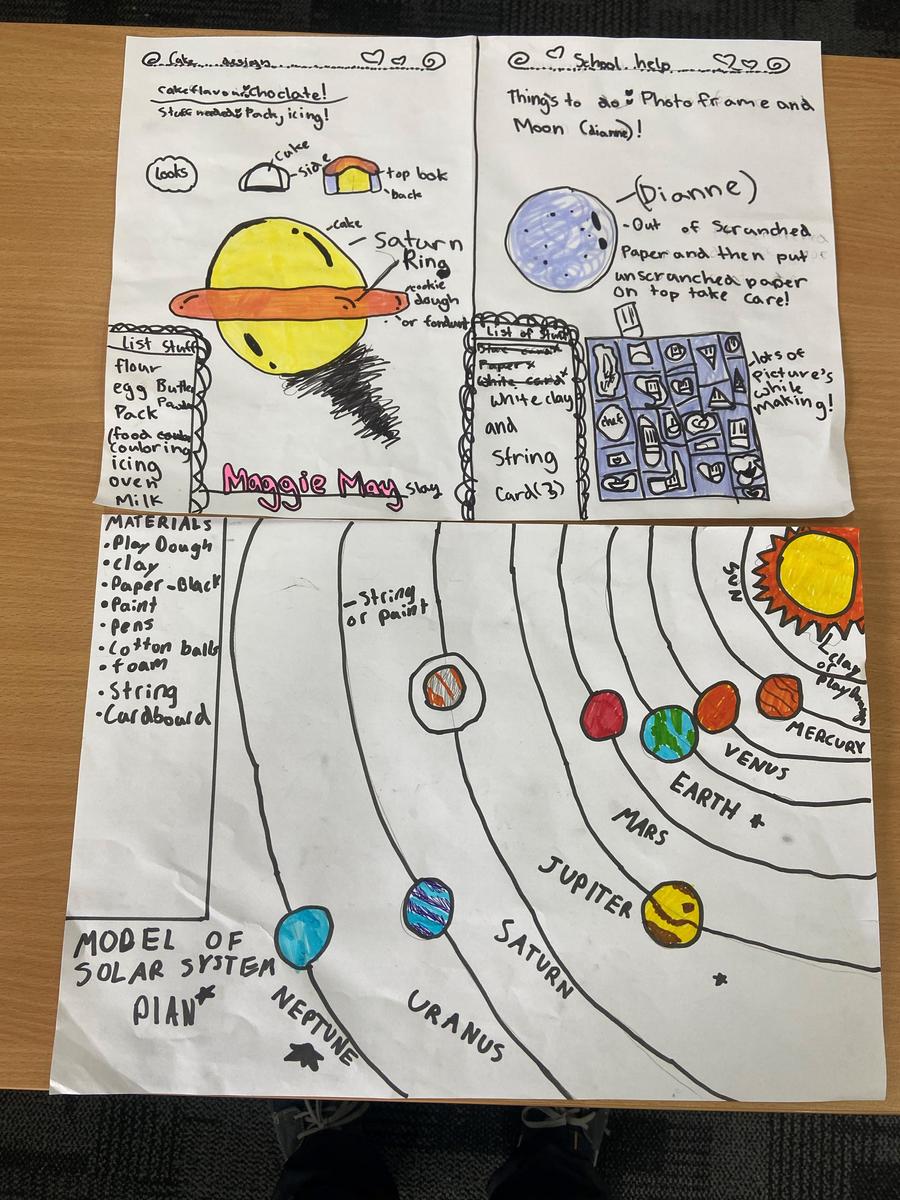 Cake design
Cake flavour: Choclate!
Stuff needed: Pack, icing!
Looks
Cake
Side
top look
back
Cake
Saturn
Ring
cookie
dough
or fondant
List Stuff
flour
egg Butter
Pack
(food
Couloring
icing
oven
Milk
Maggie May slay
School help
Things to do: Photo frame and
Moon (dianne)!
(Dianne)
-Out of Scrunched
Paper and then put
unscrunched paper
on top take care!
List of Stuff
Paper x
White clay
and
String
Card(3)
chef
-lots of
picture's
while
making!
MATERIALS
•Play Dough
•Clay
•Paper-Black
•Paint
•Pens
•Cotton balls
•foam
•String
•Cardboard
-String
or paint
SUN
-Clay
or
Playdough
MERCURY
VENUS
EARTH
MARS
JUPITER
SATURN
URANUS
NEPTUNE
MODEL OF
SOLAR SYSTEM
PLAN